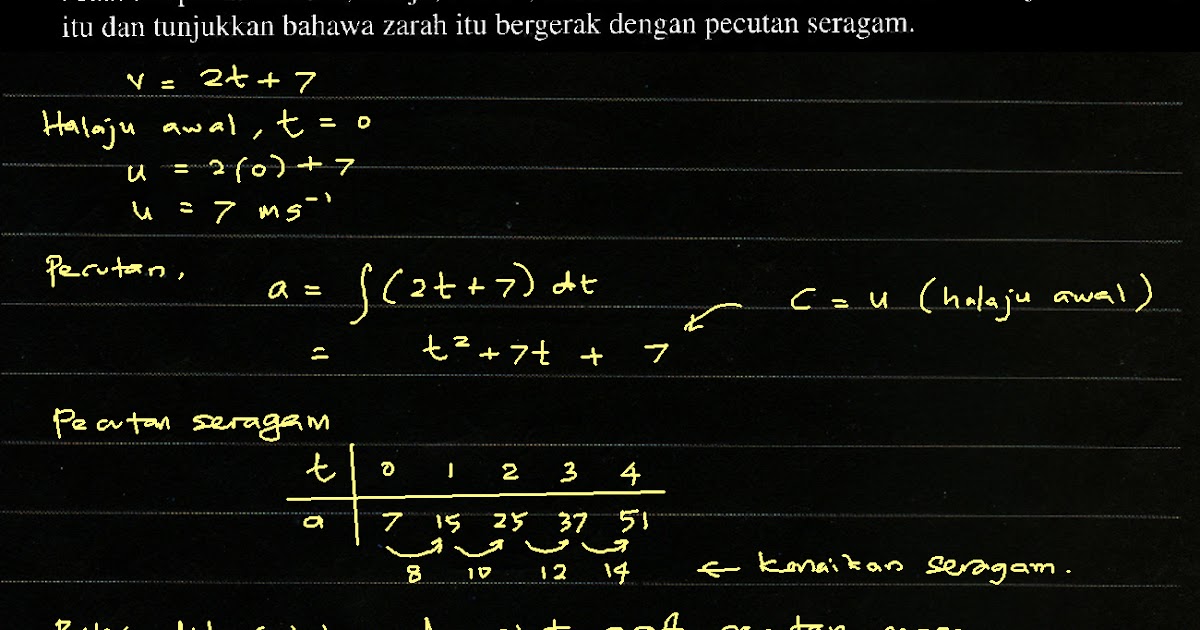 itu dan tunjukkan bahawa zarah itu bergerak dengan pecutan seragam.
v = 2t + 7
Halaju awal, t = 0
u = 2(0) + 7
u = 7 ms⁻¹
Pecutan, a = ∫(2t + 7) dt
C = u (halaju awal)
= t² + 7t + 7
Pecutan seragam
t | 0 1 2 3 4
a | 7 15 25 37 51
8 10 12 14 ← Kenaikan seragam.